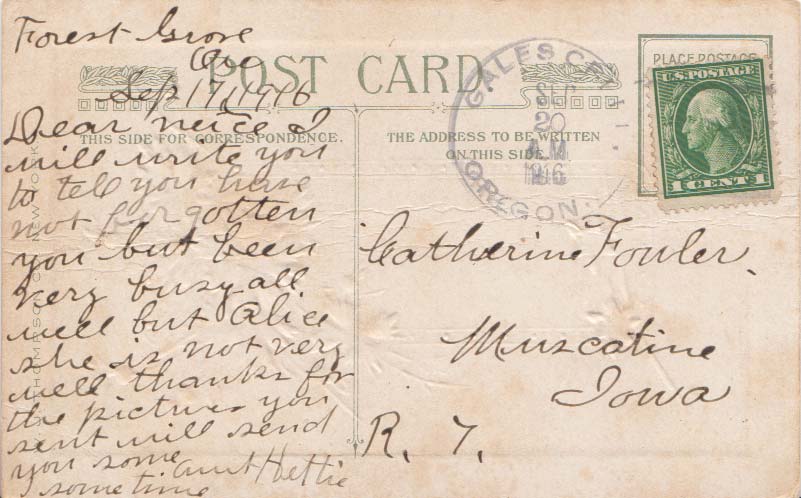 Forest Grove
Ore
Sep 17, 1916
Dear neice I
will write you
to tell you have
not forgotten
you but been
very busy all
well but Alice
she is not very
well thanks for
the pictures you
sent will send
you some
sometime
Aunt Hettie
POST CARD
THIS SIDE FOR CORRESPONDENCE.
THE ADDRESS TO BE WRITTEN
ON THIS SIDE
GALES
SEP
20
A.M.
1916
OREGON.
PLACE POSTAGE
U.S. POSTAGE
1 CENT 1
Catherine Fowler.
Muscatine
Iowa
R. 7.
THOMPSON CO. NEW YORK